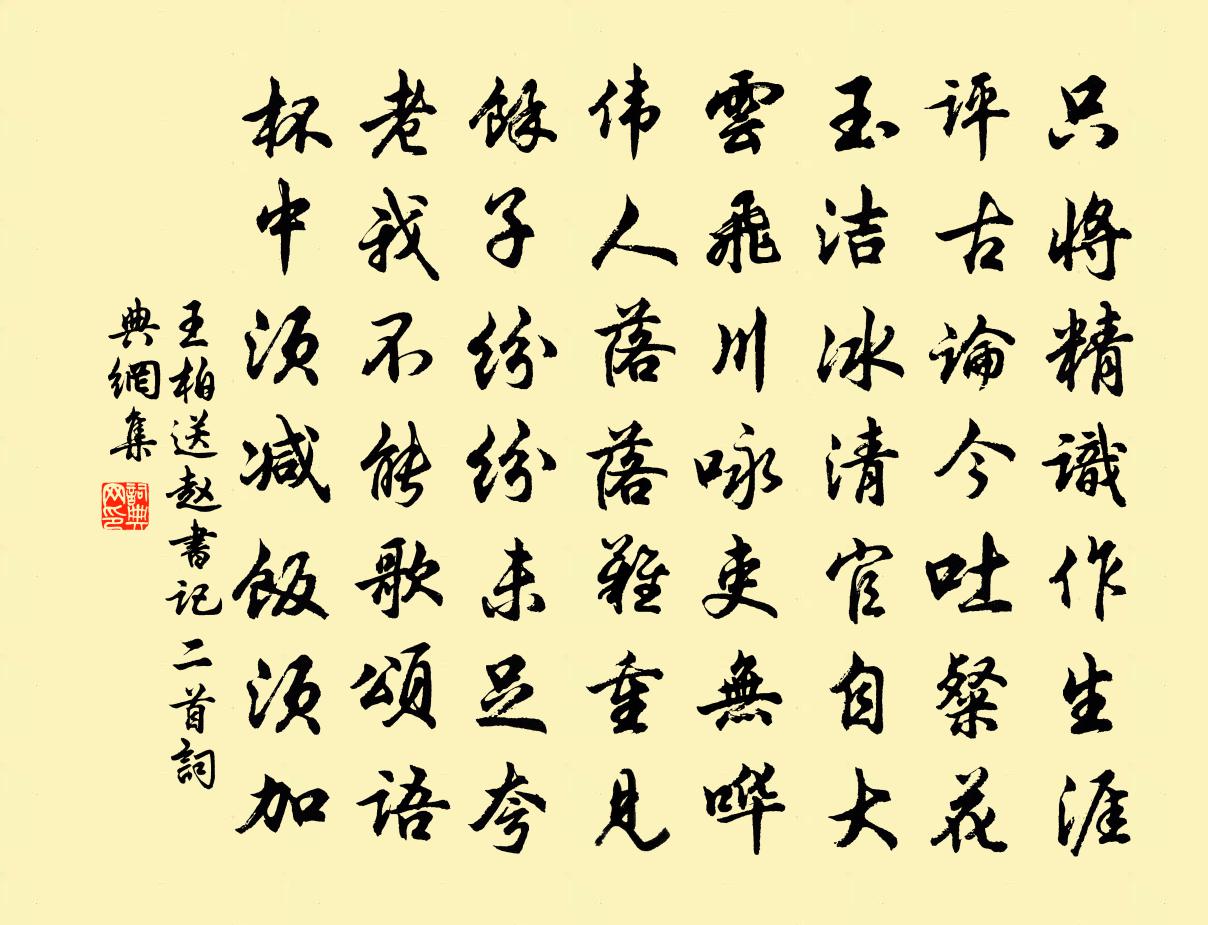 只将精識作生涯
评古論今吐粲花
玉洁冰清官自大
雲飛川咏吏無哗
伟人落落難重見
餘子纷纷未足夸
老我不能歌頌语
杯中须减飯须加
王柏送赵書记二首詞
典網集
詞典
网印